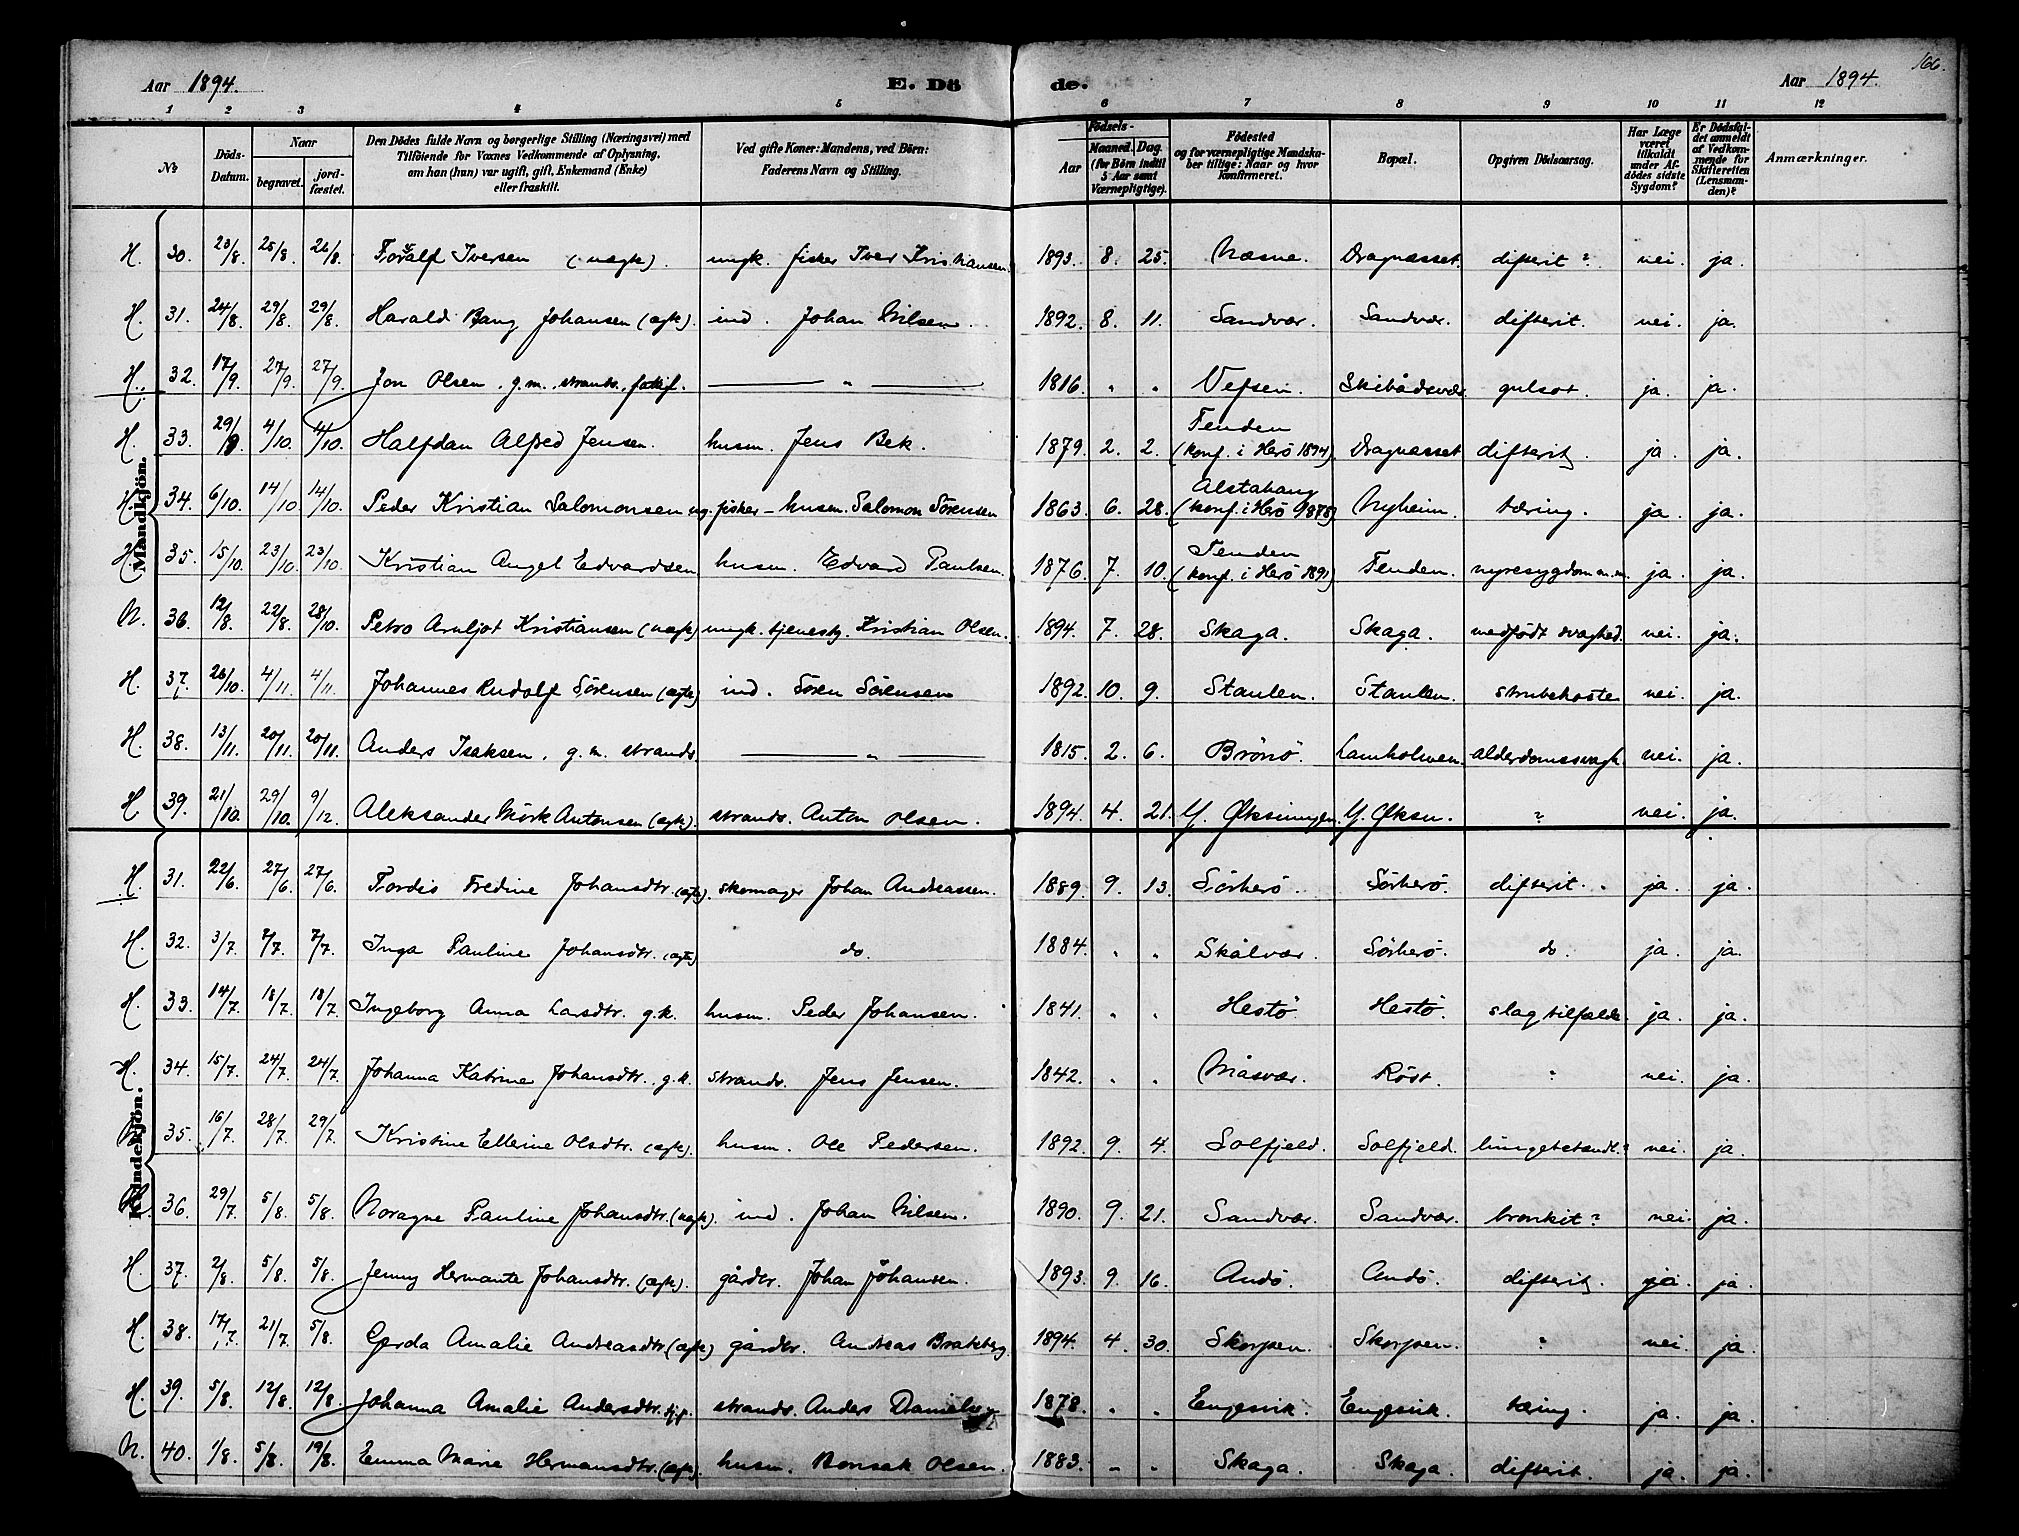 166.
Aar 1894. E. Dö de. Aar 1894.
1 2 3 4 5 6 7 8 9 10 11 12
No
Döds-Datum.
Naar
begravet.
jord-fæstet.
Den Dödes fulde Navn og borgerlige Stilling (Næringsvei) med
Tilföiende for Voxnes Vedkommende af Oplysning,
om han (hun) var ugift, gift, Enkemand (Enke)
eller fraskilt.
Ved gifte Koner: Mandens, ved Börn:
Faderens Navn og Stilling.
Födsels-
Aar
Maaned. Dag.
(for Börn indtil
5 Aar samt
Værnepligtige).
Födested
og for værnepligtige Mandska-
ber tillige: Naar og hvor
konfirmeret.
Bopæl.
Opgiven Dödsaarsag.
Har Læge
været
tilkaldt
under Af-
dödes sidste
Sygdom?
Er Dödsfal-
det anmeldt
af Vedkom-
mende for
Skifteretten
(Lensman-
den)?
Anmærkninger.
Mandkjön.
H. 30. 23/8. 25/8. 26/8. Toralf Iversen (uægte). ungk. fisker Iver Kristiansen. 1893. 8. 25. Næsne. Dragnæsset. difterit? nei. ja.
H. 31. 24/8. 29/8. 29/8. Harald Bang Johansen (ægte). ind. Johan Nilsen. 1892. 8. 11. Sandvær. Sandvær. difterit. nei. ja.
H. 32. 17/9. 27/9. 27/9. Jon Olsen, g.m. strands. — " — 1816. " " Vefsen. Skibådsvær. gulsot. ja. ja.
H. 33. 29/9 4/10. 4/10. Halfdan Alfred Jensen. husm. Jens Bek. 1879. 2. 2. Tenden (konf. i Herö 1894). Dragnæsset difterit. ja. ja.
H. 34. 6/10. 14/10 14/10. Peder Kristian Salomonsen ug. fisker – husm. Salomon Sörensen 1863. 6. 28. Alstahaug (konf. i Herö 1878) Nyheim. tæring. ja. ja.
H. 35. 15/10. 23/10. 23/10. Kristian Angel Edvardsen husm. Edvard Paulsen. 1876. 7. 10. Tenden (konf. i Herö 1891) Tenden. nyresygdom m.m. ja. ja.
N. 36. 12/8. 22/8. 28/10. Petro Arnljot Kristiansen (uægte) ungk. tjenestg. Kristian Olsen. 1894. 7. 28. Skaga. Skaga. medfödt svaghed. nei. ja.
H. 37. 26/10. 4/11. 4/11. Johannes Rudolf Sörensen (ægte) ind. Sören Sörensen 1892. 10. 9. Staulen. Staulen. strubehoste nei. ja.
H. 38. 13/11. 20/11. 20/11. Anders Isaksen, g.m. strands. — " — 1815. 2. 6. Brönö. Lamholmen. alderdomssvagh. nei. ja.
H. 39. 21/10. 29/10. 9/12. Aleksander Mörk Antonsen (ægte). strands. Anton Olsen. 1894. 4. 21. Y. Øksningen. Y. Øksn. ? nei. ja.
Kvindekjön.
H. 31. 22/6. 27/6. 27/6. Tordis Fredine Johansdtr. (ægte). skomager Johan Andreassen. 1889. 9. 13. Sörherö. Sörherö. difterit. ja. ja.
H. 32. 3/7. 7/7. 7/7. Inga Pauline Johansdtr. (ægte) do. 1884. " " Skålvær. Sörherö. do. ja. ja.
H. 33. 14/7. 18/7. 18/7. Ingeborg Anna Larsdtr. g.k. husm. Peder Johansen. 1841. " " Hestö. Hestö. slagtilfælde ja. ja.
H. 34. 15/7. 24/7. 24/7. Johanna Katrine Johansdtr. g.k. strands. Jens Jensen. 1842. " " Måsvær. Röst. ? nei. ja.
35. 16/7. 28/7. 29/7. Kristine Ellerine Olsdtr. (ægte). husm. Ole Pedersen. 1892. 9. 4. Solfjeld. Solfjeld. lungebetændl.? nei. ja.
36. 29/7. 5/8. 5/8. Noragne Pauline Johansdtr. (uægte). ind. Johan Nilsen. 1890. 9. 21. Sandvær. Sandvær. bronkit? nei. ja.
H. 37. 2/8. 5/8. 5/8. Jenny Hermanta Johansdtr. (ægte). gårdbr. Johan Johansen. 1893. 9. 16. Andö. Andö. difterit. ja. ja.
H. 38. 17/7. 21/7. 5/8. Gerda Amalie Andreasdtr. (ægte) gårdbr. Andreas Brateberg. 1894. 4. 30. Skorpen. Skorpen. ? nei. ja.
H. 39. 5/8. 12/8. 12/8. Johanna Amalie Andersdtr. strands. Anders 1878. " " Engesvik. Engesvik. tæring. ja. ja.
N. 40. 1/8. 5/8. 19/8. Emma Marie Hermansdtr. (ægte). husm. Bonsak Olsen. 1883. " " Skaga. Skaga. difterit. ja. ja.